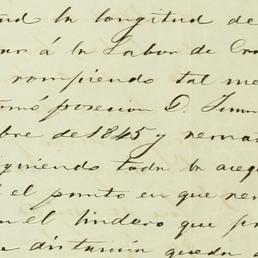 tud la longitud de
á la Labor de
rompiendo tal
posesion D.
bre de 1845 y
guiendo toda la aceq
el punto en que
en el lindero que
distancia queda